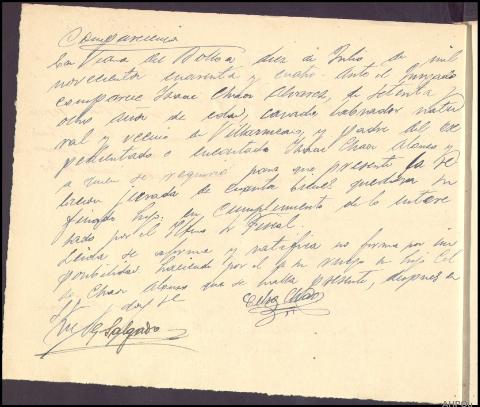 Comparecencia
En Viana del Bollo a diez de Julio de mil
novecientos cuarenta y cuatro. Ante el Juzgado
comparece Isaac Chao Alvarez, de setenta y
ocho años de edad, casado labrador natu
ral y vecino de Villarmeao, y padre del ex
pedientado o encartado Isaac Chao Alonso y
a quien se requirió para que presente la re
lación jurada de cuantos bienes quedaron su
finado hijo, en cumplimiento de lo intere
sado por el Iltmo Sr Fiscal.
Leida se afirma y ratifica no firma por im
posibilidad haciendolo por el su hijo Cel
so Chao Alonso que se halla presente, despues
doy fe
Celso Chao
G Salgado
AHPOu